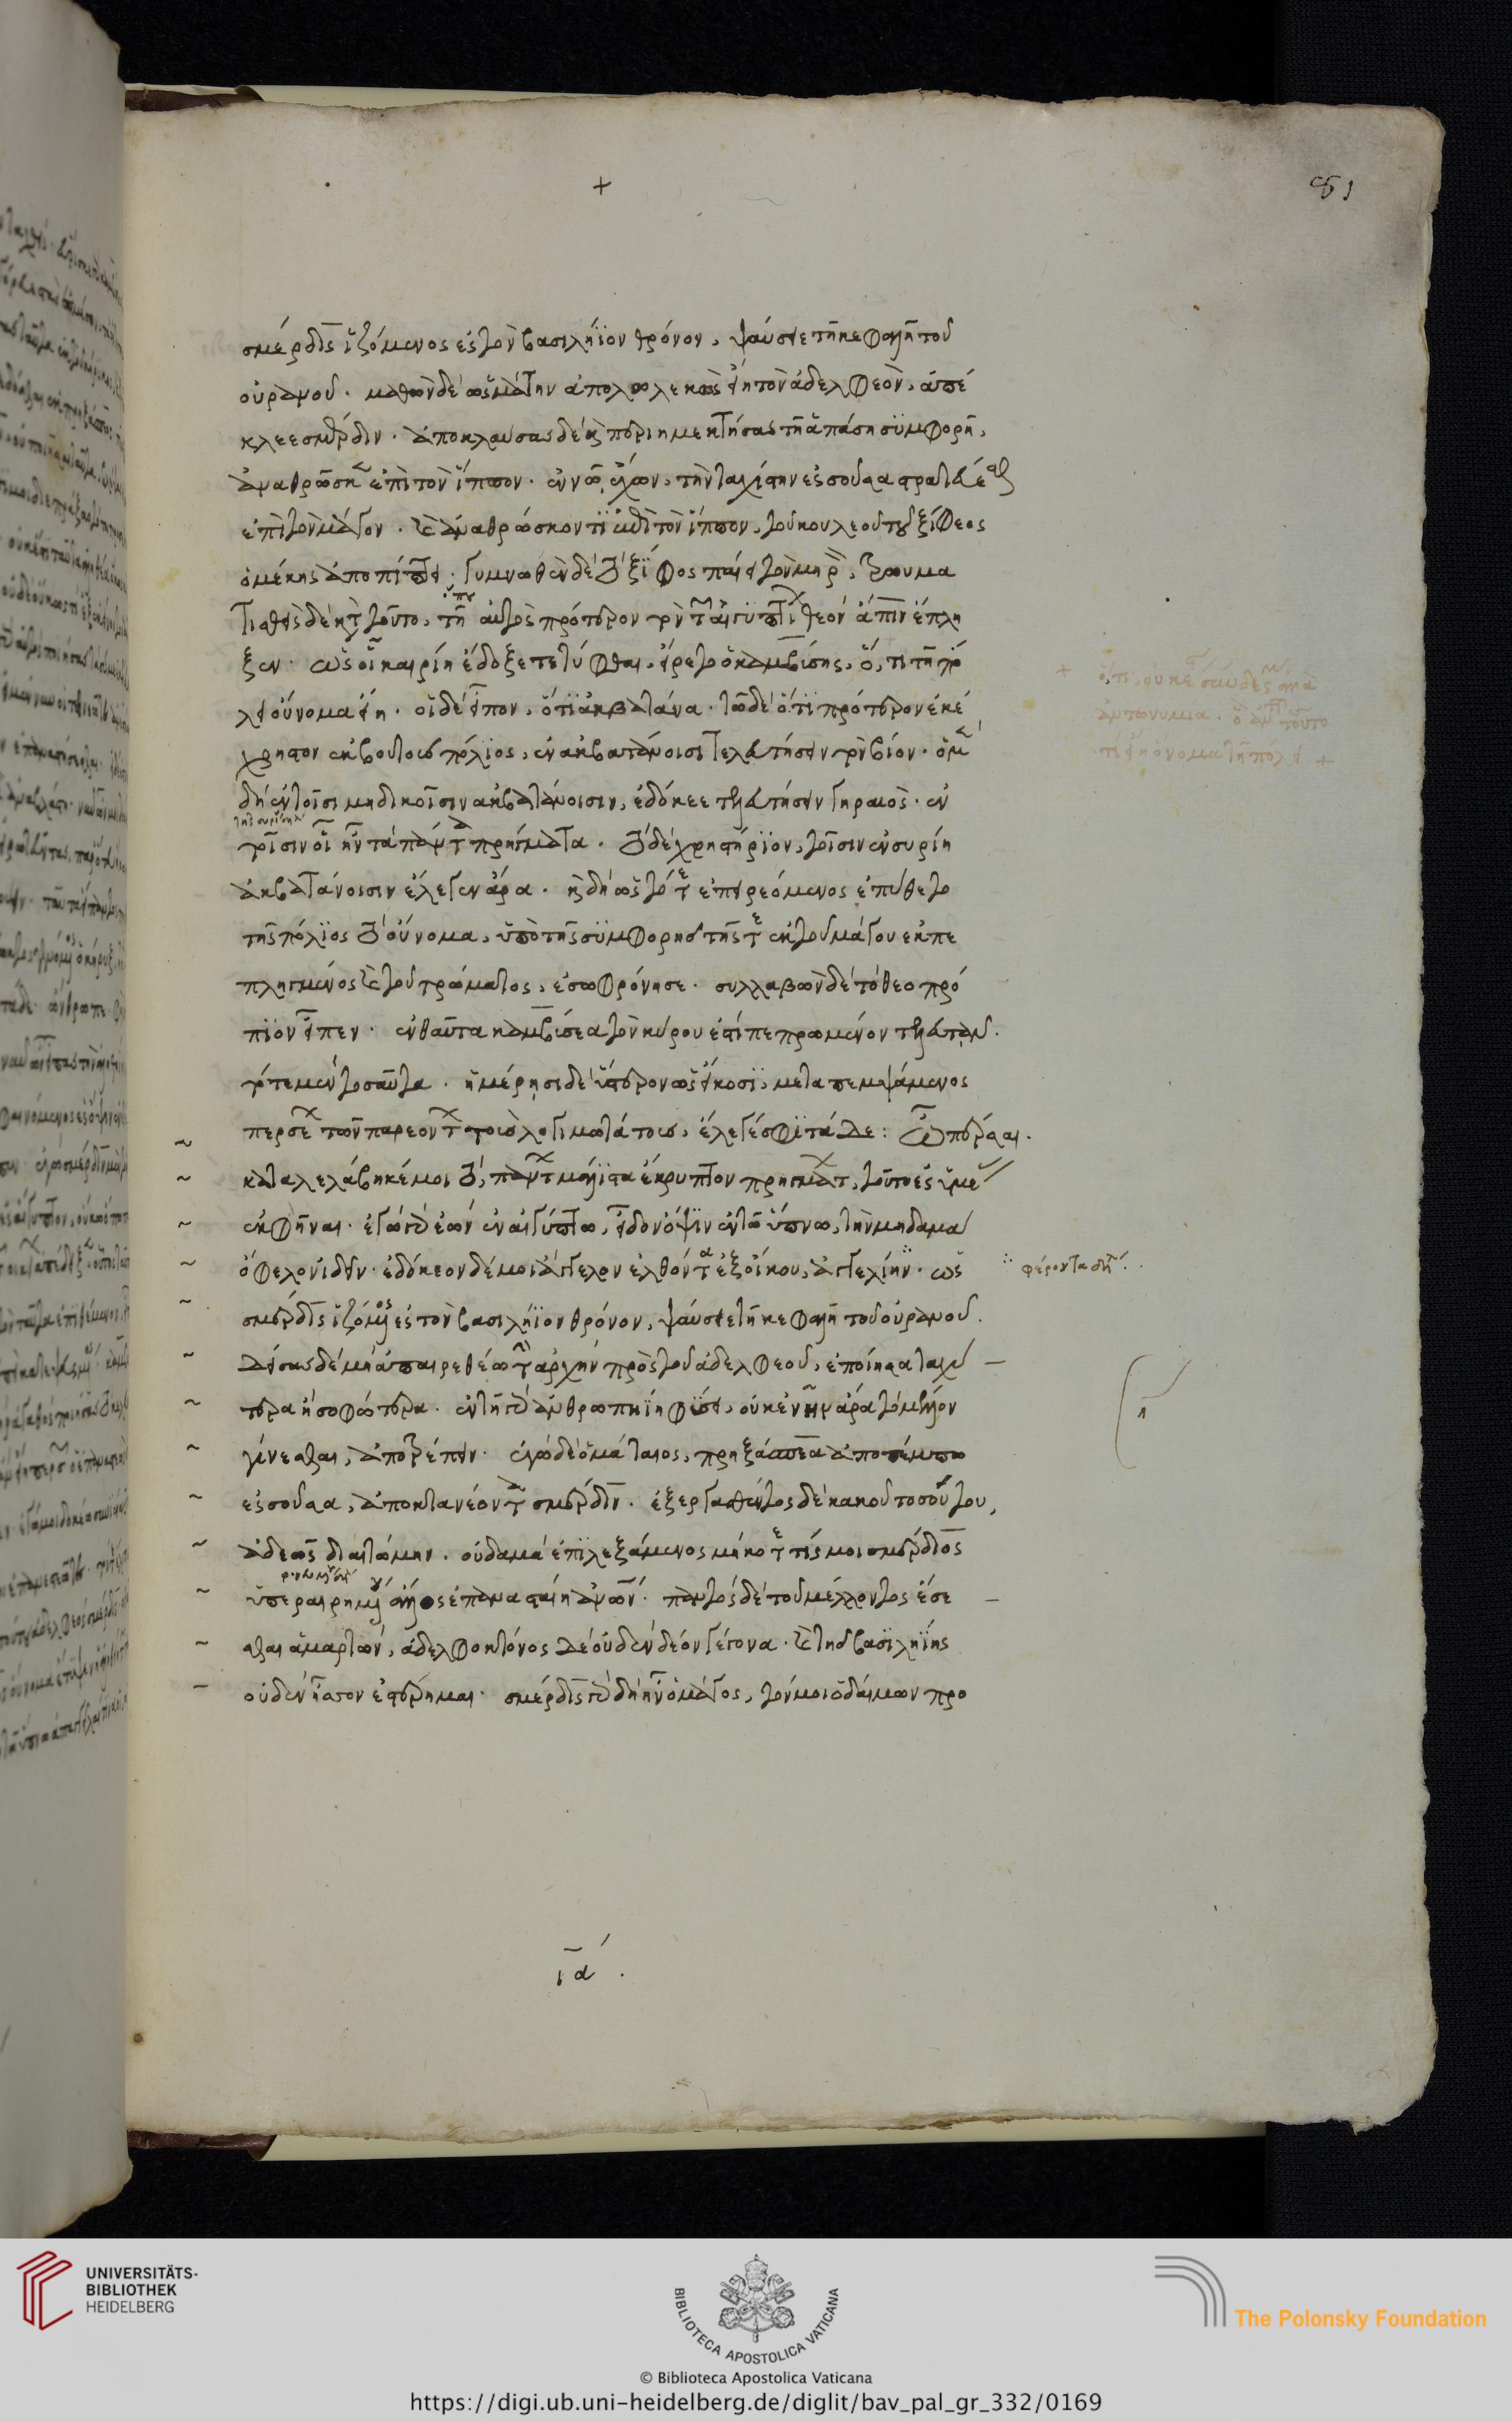 +
81
σμέρδις ἱζόμενος ἐς τὸν βασιλήϊον θρόνον, ψαύσειε τῆ κεφαλῆ τοῦ
οὐρανοῦ. μαθὼν δὲ ὡς μάτην ἀπολωλεκὼς εἴη τὸν ἀδελφεὸν, ἀπέ
κλεε σμέρδιν. ἀποκλαύσας δὲ κ περιημεκτήσας τῆ ἁπάση συμφορῆ,
ἀναθρώσκει ἐπὶ τὸν ἵππον. ἐν νῶ ἔχων, τὴν ταχίστην ἐς σοῦσα στρατεύεσθαι
ἐπὶ τὸν μάγον. καὶ ἀναθρώσκοντι ἐπὶ τὸν ἵππον, τοῦ κουλεοῦ τοῦ ξίφεος
ὁ μύκης ἀποπίπτει. γυμνωθὲν δὲ τὸ ξίφος παίει τὸν μηρὸν, τρωμα
τισθεὶς δὲ κατὰ τοῦτο, τῆ αὐτὸς πρότερον τὸν τῶν αἰγυπτίων θεὸν ἄπιν ἔπλη
ξεν. ὥς οἱ καιρίη ἔδοξε τετύφθαι, εἴρετο ὁ καμβύσης, ὅ,τι τῆ πό
λει οὔνομα εἴη. οἱ δὲ εἶπον, ὅτι ἀκβατάνα. τῶ δὲ ὅτι πρότερον ἐκέ
χρηστο ἐκ βουτοῦς πόλιος, ἐν ἀκβατάνοισι τελευτήσειν τὸν βίον. ὁ μὲν
δὴ ἐν τοῖσι μηδικοῖσιν ἀκβατάνοισιν, ἐδόκεε τελευτήσειν γηραιὸς. ἐν
τοῖσιν οἱ ἦν τὰ πάντα πρήγματα. τὸ δὲ χρηστήριον, τοῖσιν ἐν συρίη
ἀκβατάνοισιν ἔλεγεν ἄρα. κ δὴ ὡς τότε ἐπειρεόμενος ἐπύθετο
τῆς πόλιος τὸ οὔνομα, ὑπὸ τῆς συμφορῆς τῆς τε ἐκ τοῦ μάγου ἐκπε
πληγμένος καὶ τοῦ τρώματος, ἐσωφρόνησε. συλλαβὼν δὲ τὸ θεοπρό
πιον εἶπεν. ἐνθαῦτα καμβύσεα τὸν κύρου ἐστί πεπρωμένον τελευτᾶν.
τότε μὲν τοσαῦτα. ἡμέρησι δὲ ὕστερον ὡς εἴκοσι, μεταπεμψάμενος
περσέων τῶν παρεόντων τοὺς λογιμωτάτους, ἔλεγέ σφι τάδε: ὦ πέρσαι.
καταλελάβηκέ μοι τὸ, πάντων μάλιστα ἔκρυπτον πρηγμάτων, τοῦτο ἐς ὑμέας
ἐκφῆναι. ἐγὼ γὰρ ἐὼν ἐν αἰγύπτω, εἶδον ὄψιν ἐν τῶ ὕπνω, τὴν μηδαμὰ
ὄφελον ἰδεῖν. ἐδόκεον δέ μοι ἄγγελον ἐλθόντα ἐξ οἴκου, ἀγγελίην. ὡς
σμέρδις ἱζόμενος ἐς τὸν βασιλήϊον θρόνον, ψαύσειε τῆ κεφαλῆ τοῦ οὐρανοῦ.
δείσας δὲ μὴ ἀπαιρεθέω τὴν ἀρχὴν πρὸς τοῦ ἀδελφεοῦ, ἐποίησα ταχύ
τερα ἢ σοφώτερα. ἐν τῆ γὰρ ἀνθρωπηΐη φύσει, οὐκ ἐνῆν ἄρα τὸ μέλλον
γίνεσθαι, ἀποτρέπειν. ἐγὼ δὲ ὁ μάταιος, πρηξάσπεα ἀποπέμπω
ἐς σοῦσα, ἀποκτανέοντα σμέρδιν. ἐξεργασθέντος δὲ κακοῦ τοσούτου,
ἀδεῶς διαιτώμην. οὐδαμὰ ἐπιλεξάμενος μή κοτε τίς μοι σμέρδιος
ὑπεραιρημένου ἄλλος ἐπανασταίη ἀνθρώπων. παντὸς δὲ τοῦ μέλλοντος ἔσε
σθαι ἁμαρτὼν, ἀδελφοκτόνος δὲ οὐδὲν δέον γέγονα. καὶ τῆς βασιληΐης
οὐδὲν ἧσσον ἐστέρημαι. σμέρδις γὰρ δὴ ἦν ὁ μάγος, τόν μοι ὁ δαίμων προ
φέροντα
ια΄.
UNIVERSITÄTS-
BIBLIOTHEK
HEIDELBERG
BIBLIOTECA APOSTOLICA VATICANA
The Polonsky Foundation
© Biblioteca Apostolica Vaticana
https://digi.ub.uni-heidelberg.de/diglit/bav_pal_gr_332/0169